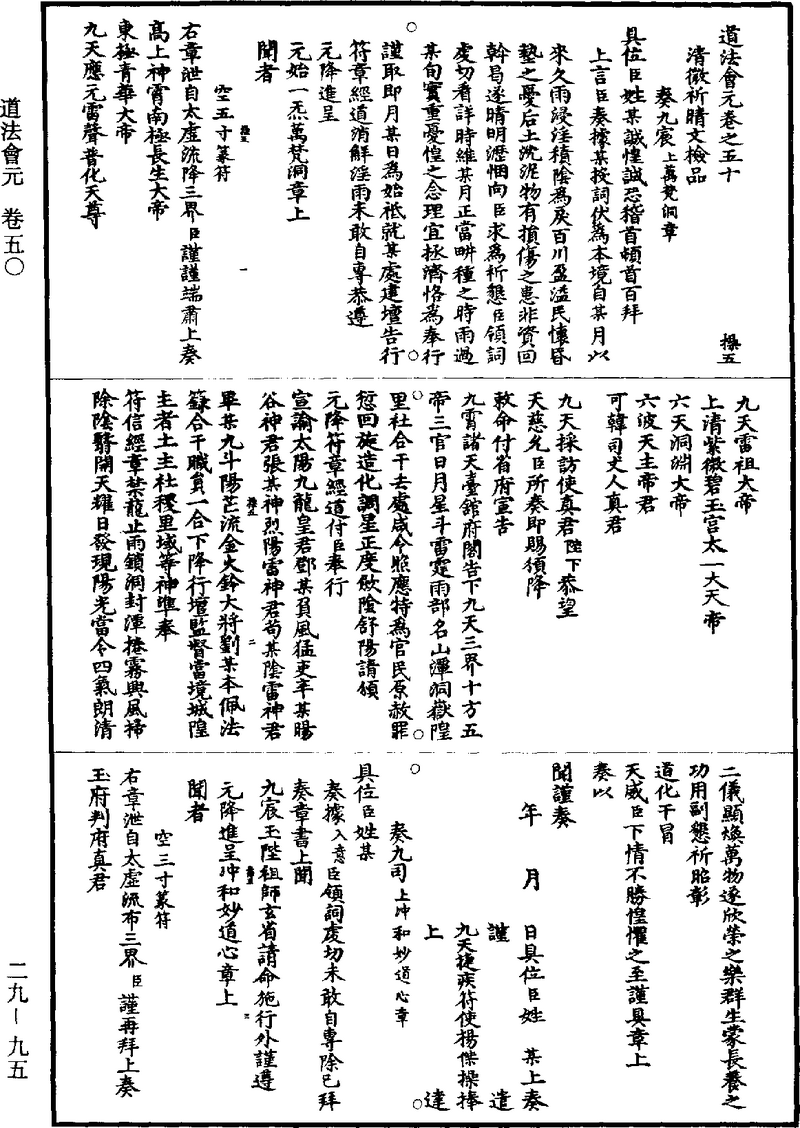 道法會元卷之五十　操五
清微祈晴文檢品
奏九宸上萬梵洞章
具位臣姓某誠惶誠恐稽首頓首百拜
上言臣奏據某投詞伏為本境自某月以
來久雨浸淫積陰為戾百川盈溢民懷昏
墊之憂后土沉泥物有損傷之患非資回
斡曷遂晴明瀝悃向臣求為祈懇臣領詞
虔切看詳時維某月正當畊種之時雨過
某旬實重憂惶之念理宜拯濟恪為奉行
謹取即月某日為始祗就某處建壇告行
符章經道消解淫雨未敢自專恭遵
元降進呈
元始一炁萬梵洞章上
聞者
空五寸篆符
右章泄自太虛流降三界臣謹謹端肅上奏
高上神霄南極長生大帝
東極青華大帝
九天應元雷聲普化天尊
九天雷祖大帝
上清紫微碧玉宮太一大天帝
六天洞淵大帝
六波天主帝君
可韓司丈人真君
九天採訪使真君陛下恭望
天慈允臣所奏即賜頒降
敕命付省府宣告
九霄諸天臺館府閣告下九天三界十方五
帝三官日月星斗雷霆雨部名山潭洞嶽隍
里社合干去處咸令照應特為官民原赦罪
愆回旋造化調星正度斂陰舒陽請頒
元降符章經道付臣奉行
宣諭太陽九龍皇君鄧某負風猛吏辛某暘
谷神君張某神烈陽雷神君苟某陰雷神君
畢某九斗陽芒流金火鈴大將劉某本佩法
籙合干職員一合下降行壇監督當境城隍
主者土主社稷里域等神準奉
符信經章禁龍止雨鎖洞封潭捲霧興風掃
除陰翳開天耀日發現陽光當令四氣朗清
二儀顯煥萬物遂欣榮之樂群生蒙長養之
功用副懇祈昭彰
道化干冒
天威臣下情不勝惶懼之至謹具章上
奏以
聞謹奏
年　月　日具位臣姓　某上奏
謹　遣
九天捷疾符使楊傑操捧
上　達
奏九司上冲和妙道心章
具位臣姓某
奏據入意臣領詞虔切未敢自專除已拜
奏章書上聞
九宸玉陛祖師玄省請命施行外謹遵
元降進呈冲和妙道心章上
聞者
空三寸篆符
右章泄自太虛流布三界臣謹再拜上奏
玉府判府真君
道法會元　卷五〇
二九—九五